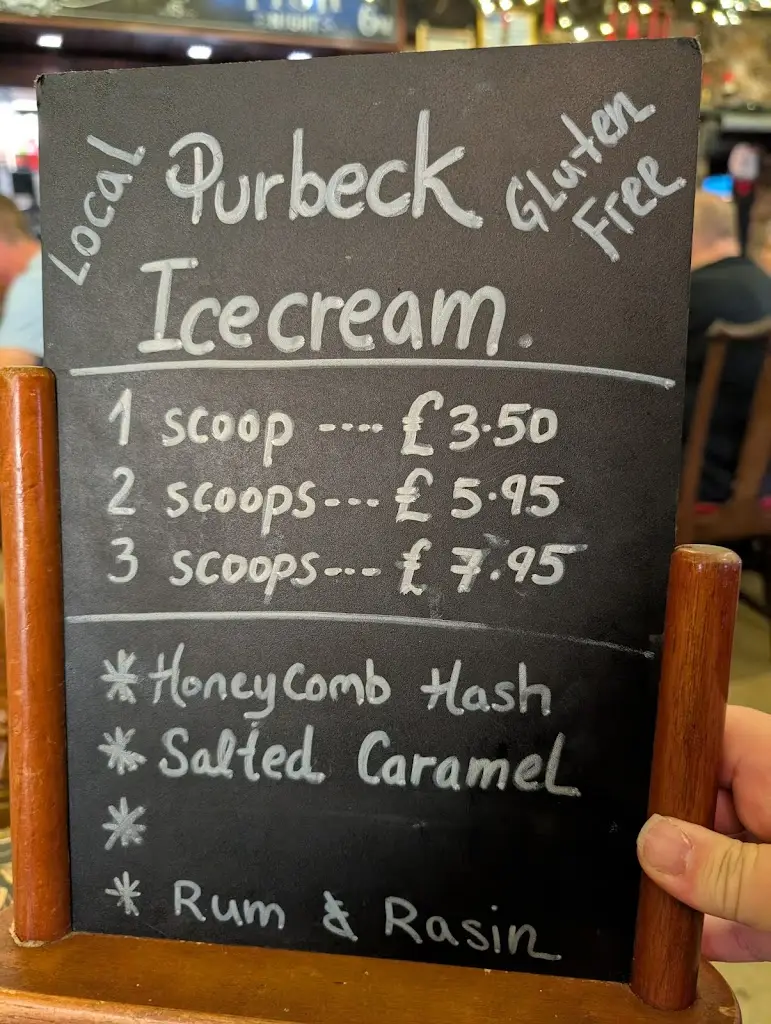 NIGHT
Local
Purbeck
Gluten
Free
Icecream.
1 scoop ---- £3.50
2 scoops--- £5.95
3 scoops--- £7.95
* HoneyComb Hash
* Salted Caramel
*
* Rum & Rasin